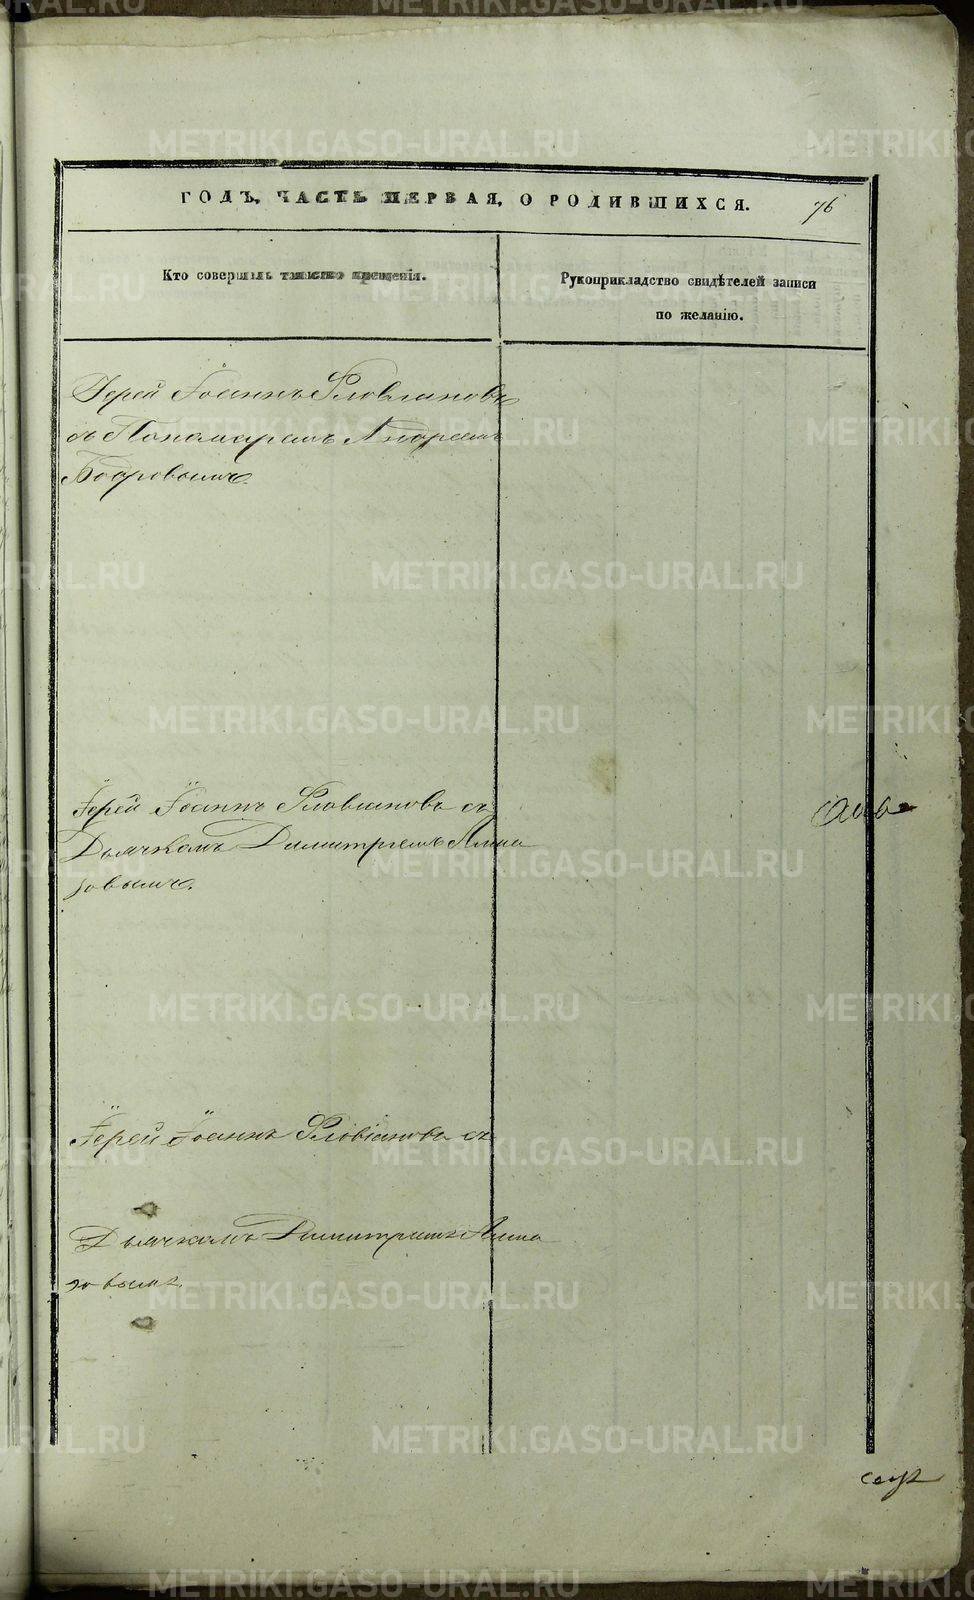 ГОДЪ, ЧАСТЬ ПЕРВАЯ, О РОДИВШИХСЯ.
76
Кто совершалъ таинство крещенія.
Рукоприкладство свидѣтелей записи
по желанію.
Іерей Іоаннъ Словцановъ
съ Пономаремъ Андреемъ
Бобровымъ.
Їерей Їоаннъ
съ
Дьячкомъ Димитріемъ
зовымъ.
Їерей Їоаннъ
съ
Дьячкомъ Димитріемъ
зовымъ
METRIKI.GASO-URAL.RU